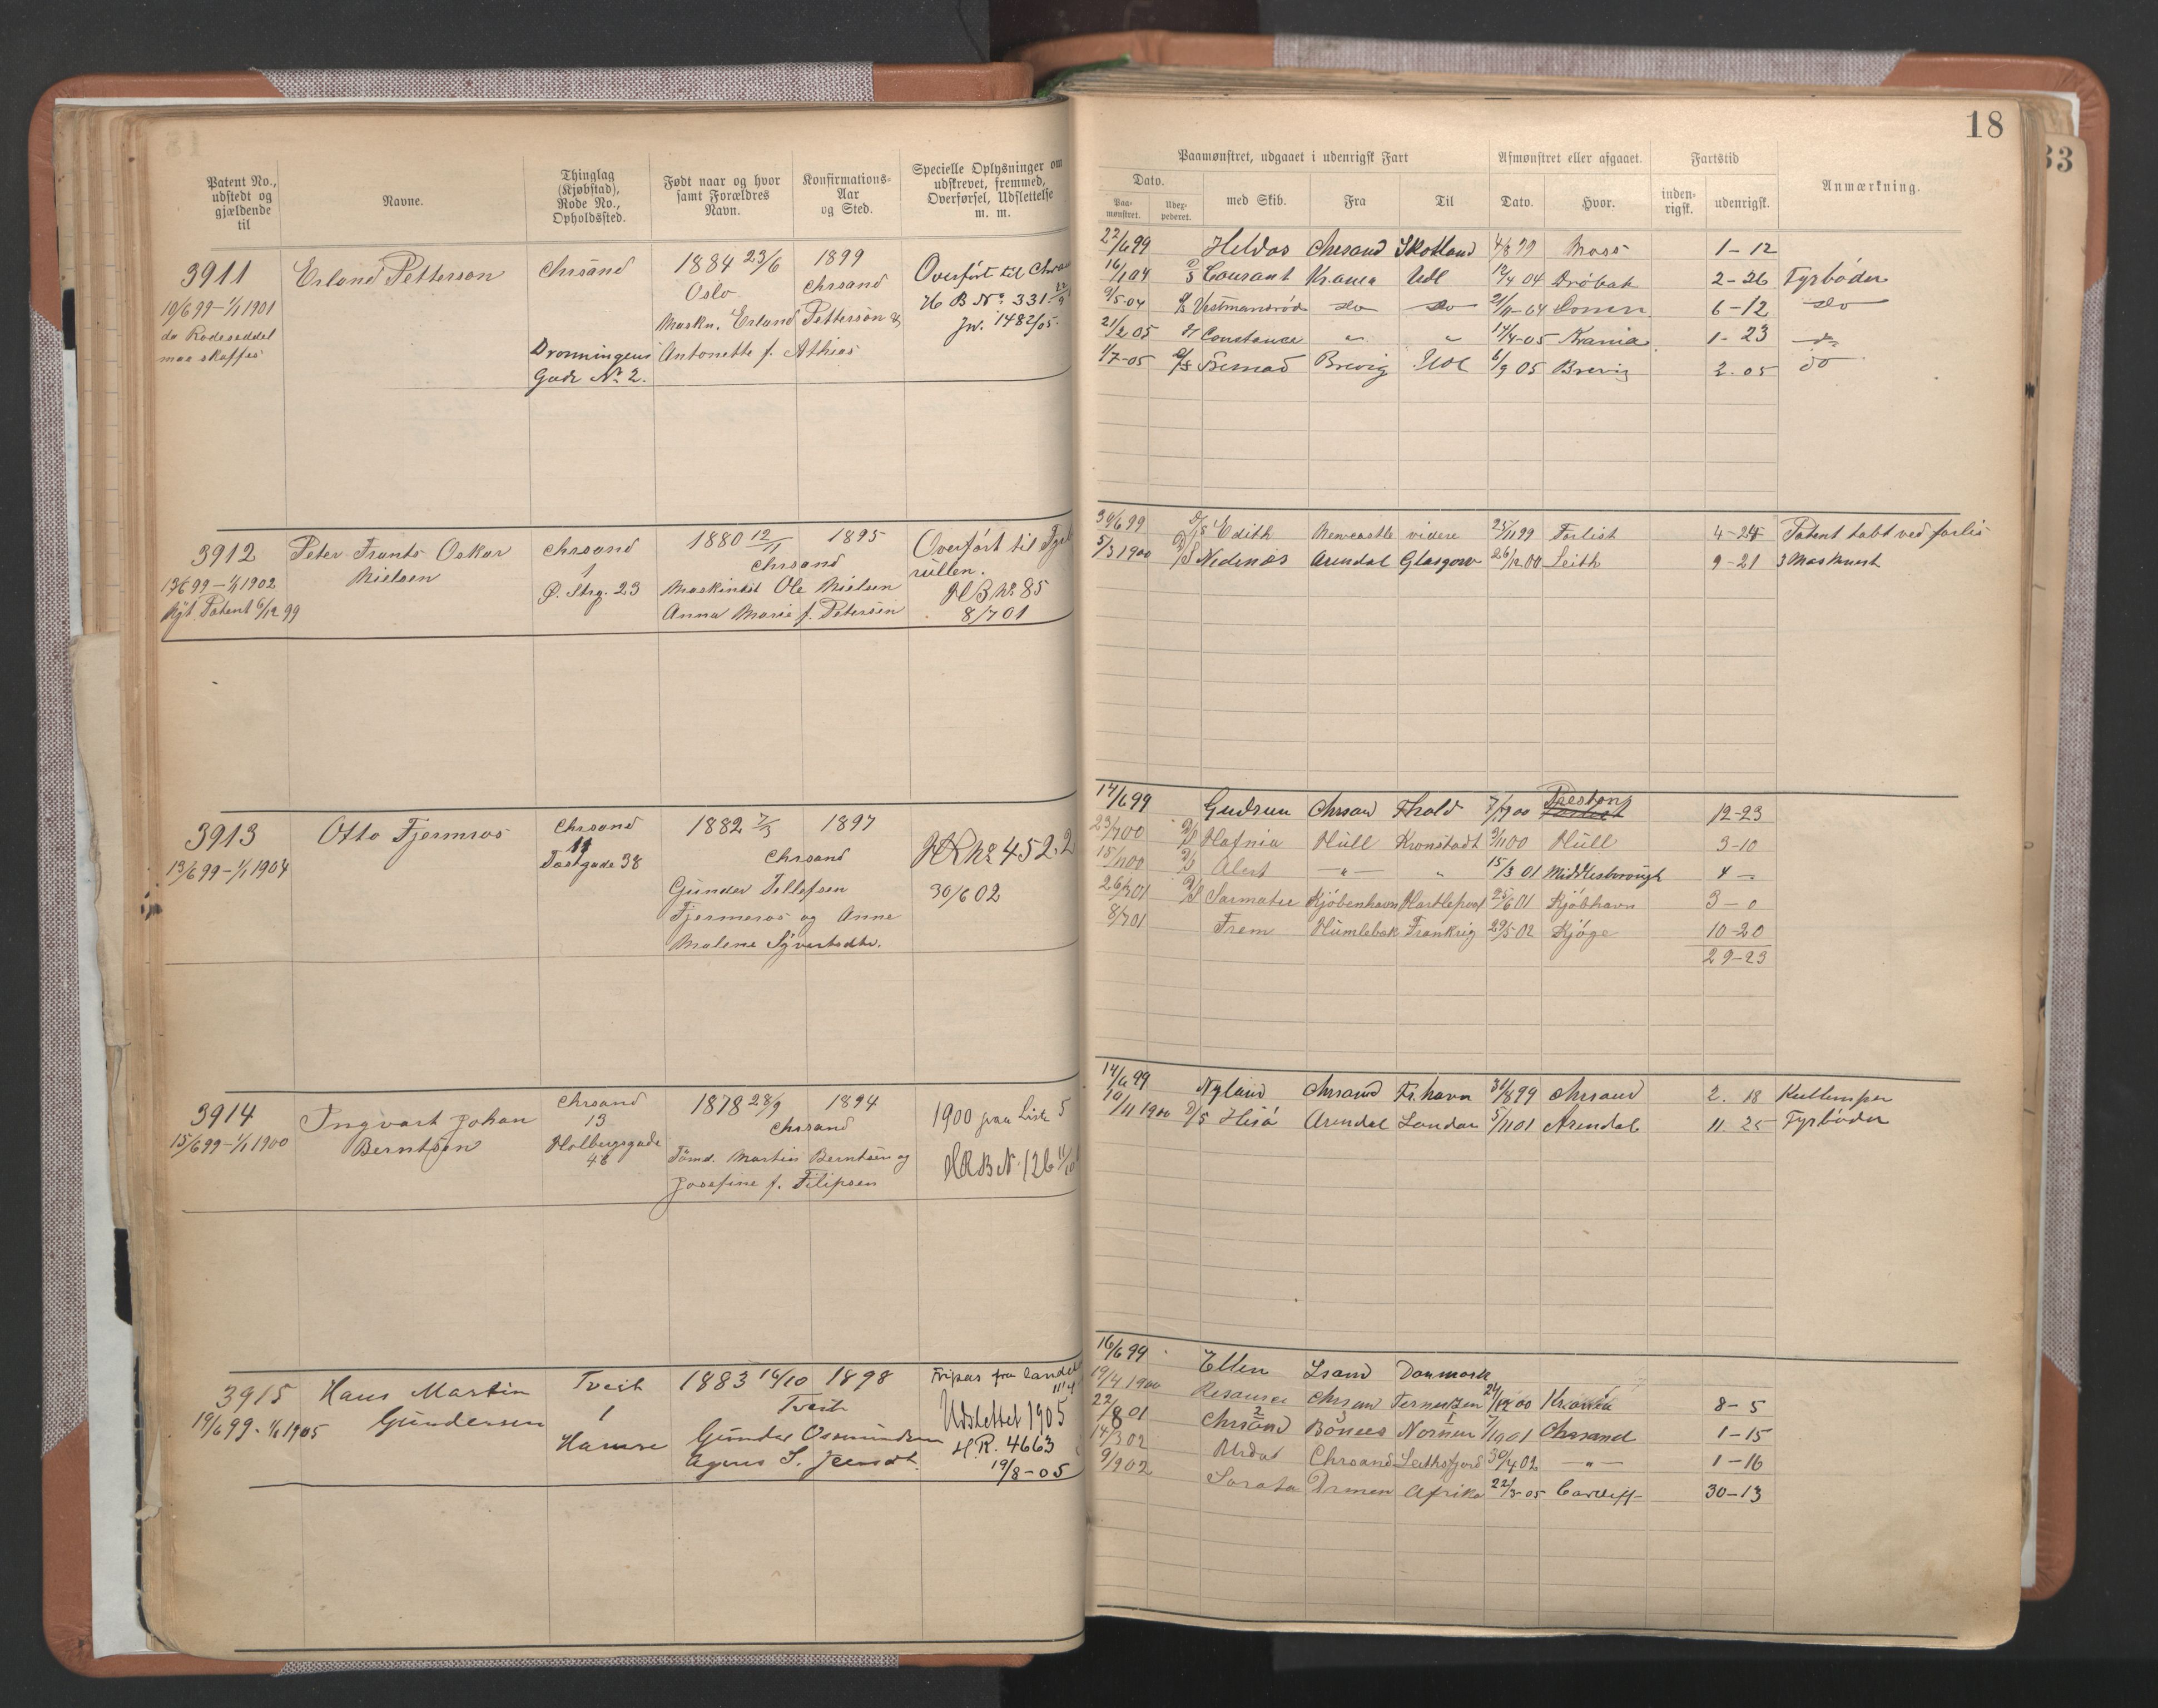 18
Patent No., udstedt og gjældende til
Navne.
Thinglag (Kjøbstad), Rode No., Opholdssted.
Født naar og hvor samt Forældres Navn.
Konfirmations-Aar og Sted.
Specielle Oplysninger om udskrevet, fremmed, Overførsel, Udslettelse m. m.
3911
19/6 99 – 1/1 1901
da Rodeseddel
maa skaffes
Erland Petterson
Chrsand
Dronningens
Gade No 2.
1884 23/6
1899
Oslo
Chrsand
Maskn. Erland Petterson &
Antonette f. Athias
Overført til
H B No 331
Jn. 1482/05.
3912
13/6 99 – 1/1 1902
Nyt Patent 6/12 99
Peter Frants Oskar
Nielsen
Chrsand
1
Ø. Strg. 23
1880 12/11
1895
Chrsand
Maskinist Ole Nielsen
Anna Marie f. Petersen
Overført til
rullen.
HB No 85
8/7 01
3913
13/6 99 – 1/1 1904
Otto Fjermros
Chrsand
11
Tostgade 38
1882 7/3
1897
Chrsand
Gunder Tellefsen
Fjermeros og Anne
Malene Syvertsdtr.
HR No 452.2
30/6 02
3914
15/6 99 – 1/1 1900
Ingvart Johan
Berntsen
Chrsand
13
Holbergsgade
48
1878 28/9
1894
Chrsand
Tømd. Martin Berntsen og
Josefine f. Filipsen
1900 paa Liste 5
HRB N. 126
3915
19/6 99 – 1/1 1905
Hans Martin
Gundersen
Tveit
1
Hamre
1883 16/10 1898
Tveit
Gunder Osmundsen
Agnes S.
Fripas fra landet
Udslettet 1905
H.R. 4663
19/8–05
Paamønstret, udgaaet i udenrigsk Fart
Afmønstret eller afgaaet.
Fartstid
Anmærkning.
Dato.
Paa-mønstret.
Uder-pederet.
med Skib.
Fra
Til
Dato.
Hvor.
inden-rigsk.
udenrigsk.
22/6 99 Heldos Chrsand Skotland 4/8 99 Moss 1–12
16/1 04 D/S Courant Krania Udl 12/4 04 Drøbak 2–26 Fyrbøder
9/5–04 Vestmanrød do do 21/11–04 6–12 do
21/2 05 Constance " " 14/4–05 Krania 1–23
1/7–05 D/S Brevig Udl 6/9 05 Brevig 2.05 do
30/6 99 D/S Edith Newcastle videre 25/11 99 Forlist 4–24 Patent tabt ved forlis
5/3 1900 D/S Nedenes Arendal Glasgow 26/12 00 Leith 9–21 3 Maskinist
14/6 99 Gudrun Chrsand Thold 7/7 00 Preston 12–23
23/7 00 D/S Hafnia Hull Kronstadt 3/11 00 Hull 3–10
15/11 00 D/S Alert –"– " 15/3 01 Middlesbrough 4 –
26/3 01 D/S Sarmatie Kjøbenhavn Hartlepool 25/6 01 Kjøbhavn 3–0
8/7 01 Frem Humlebek Frankrig 29/5 02 Kjøge 10–20
29–23
14/6 99 Nyland Chrsand Fr.havn 31/8 99 Chrsand 2. 18 Kullemper
10/11 1900 D/S Hisø Arendal London 5/11 01 Arendal 11. 25 Fyrbøder
16/6 99 Ellen Lsand Danmark
19/4 1900 Resource Chrsan 24/12 00 Krania 8–5
22/8 01 Chrsand Böness Norner 7/10 01 Chrsand 1–15
14/3 02 Chrsand Leithsfjord 30/4 02 –"– 1–16
9/9 02 Sorata Drmen Afrika 22/3–05 Cardiff 30–13